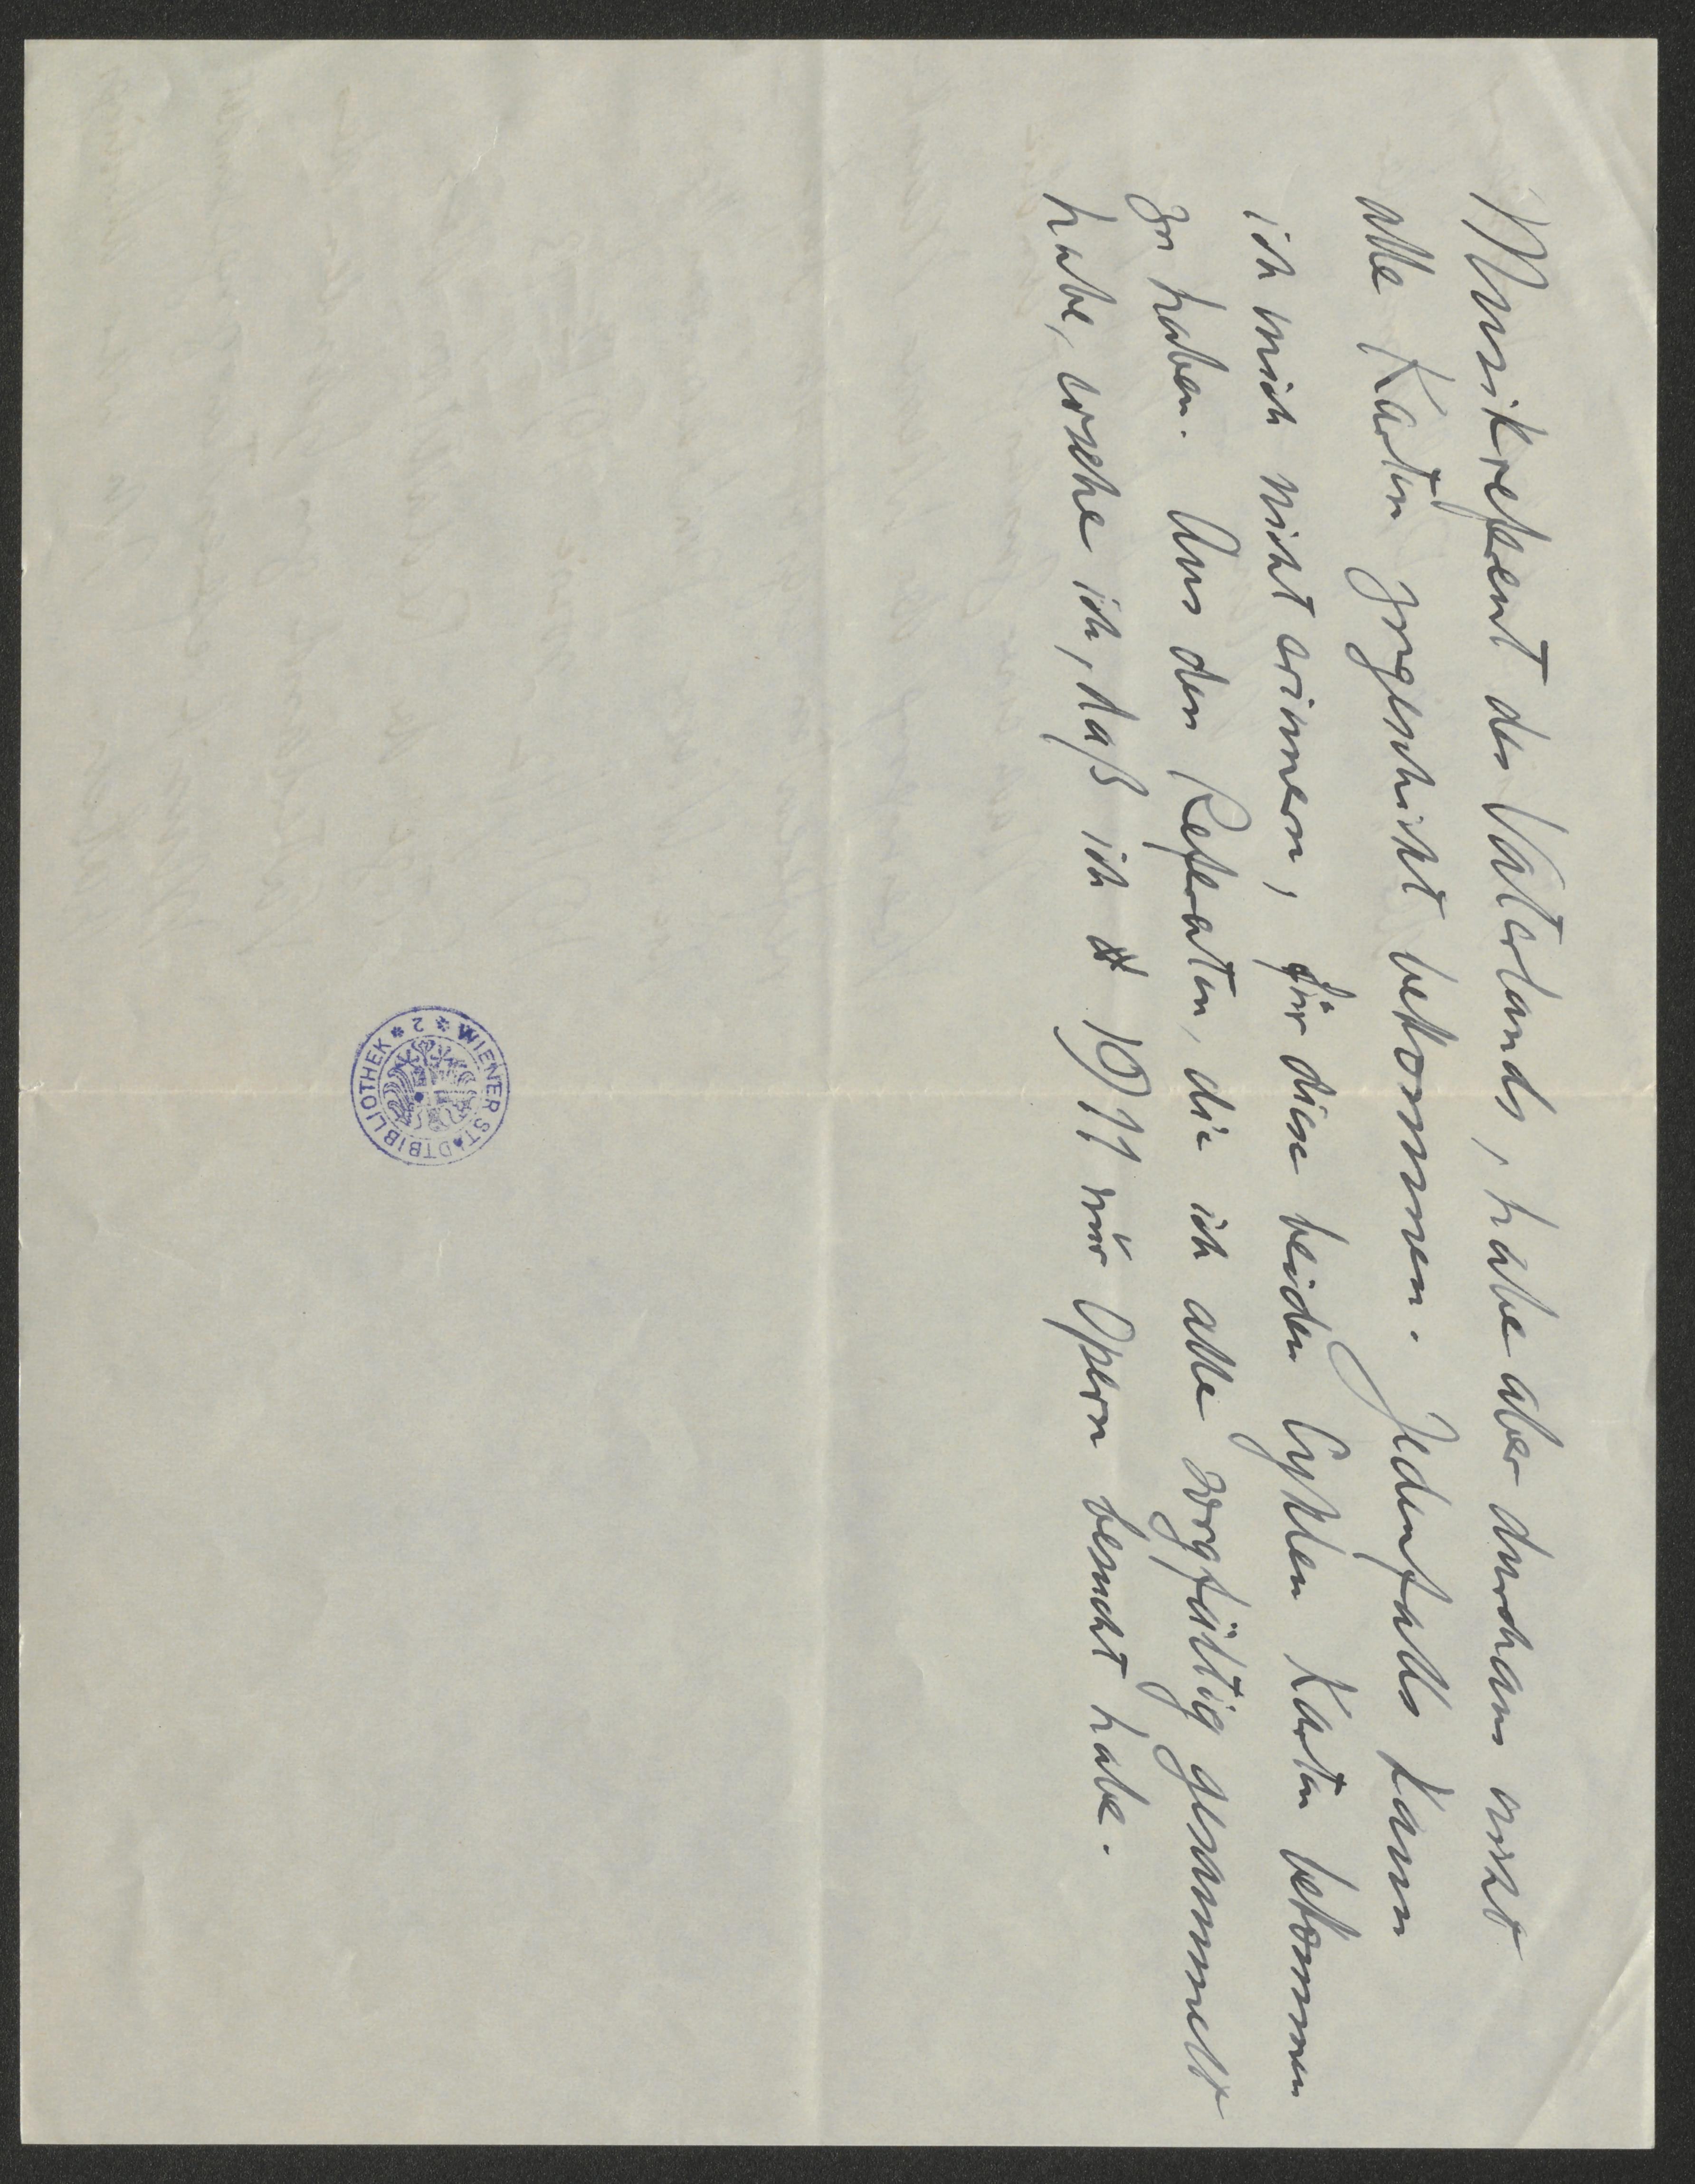 Musikreferent des Vaterlands, habe aber durchaus nicht
alle Karten zugeschickt bekommen. Jedenfalls kann
ich mich nicht erinnern, für diese beiden Cyklen Karten bekommen
zu haben. Aus den Referaten, die ich alle sorgfältig gesammelt
habe, ersehe ich, daß ich 1911 nur Opern besucht habe.
WIENER STADTBIBLIOTHEK * 2 *